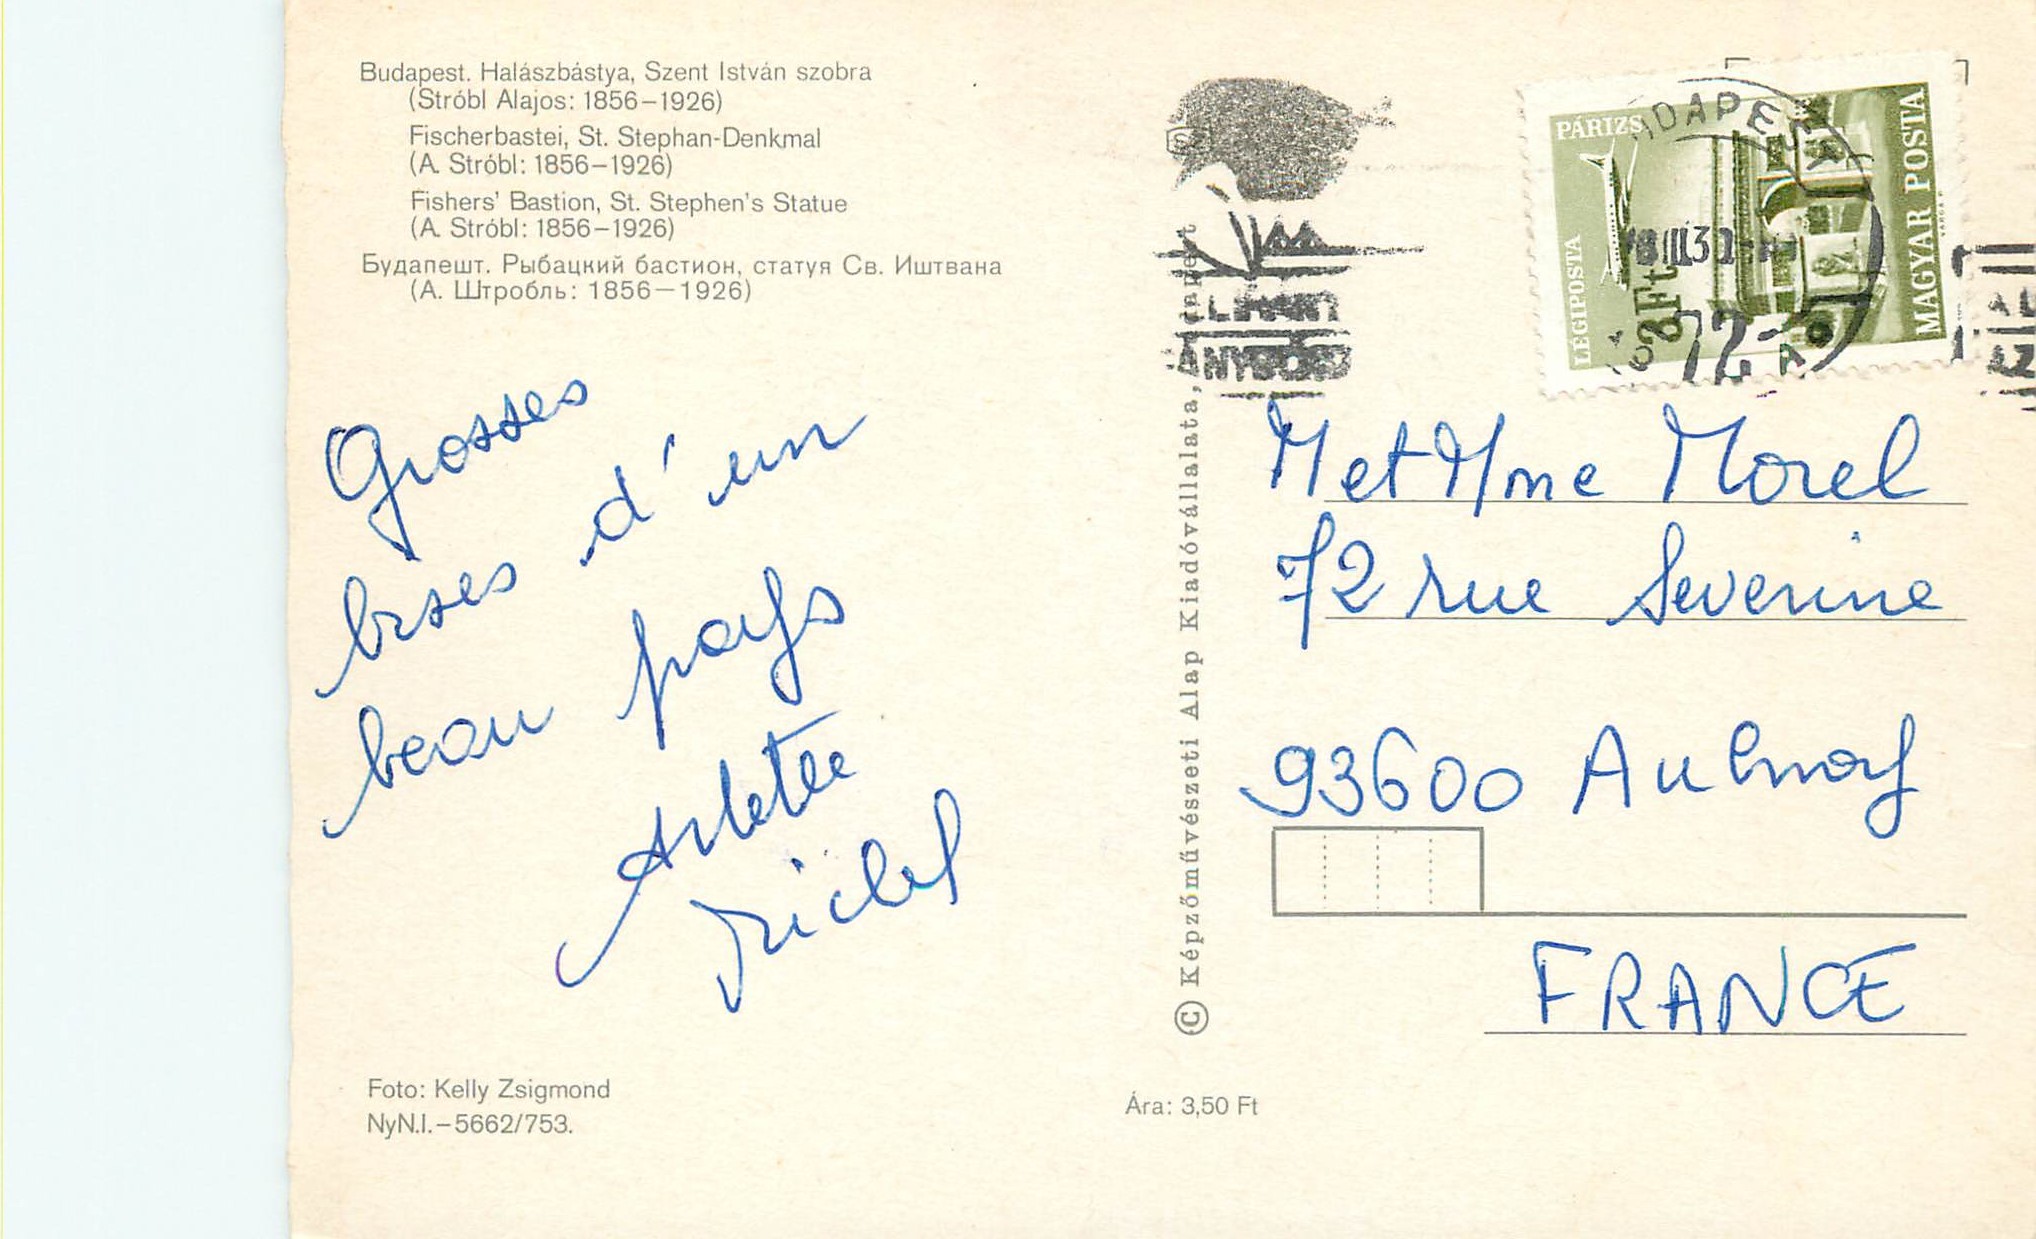 Budapest. Halászbástya, Szent István szobra
(Stróbl Alajos: 1856–1926)
Fischerbastei, St. Stephan-Denkmal
(A. Stróbl: 1856–1926)
Fishers' Bastion, St. Stephen's Statue
(A. Stróbl: 1856–1926)
Будапешт. Рыбацкий бастион, статуя Св. Иштвана
(А. Штробль: 1856–1926)
Grosses
bises d'un
beau pays
Arlette
Foto: Kelly Zsigmond
NyN.I.–5662/753.
Ára: 3,50 Ft
© Képzőművészeti Alap Kiadóvállalata, Budapest
PÁRIZS
LÉGIPOSTA
2Ft
MAGYAR POSTA
BUDAPEST
72
M et Mme Morel
72 rue Severine
93600 Aulnay
FRANCE